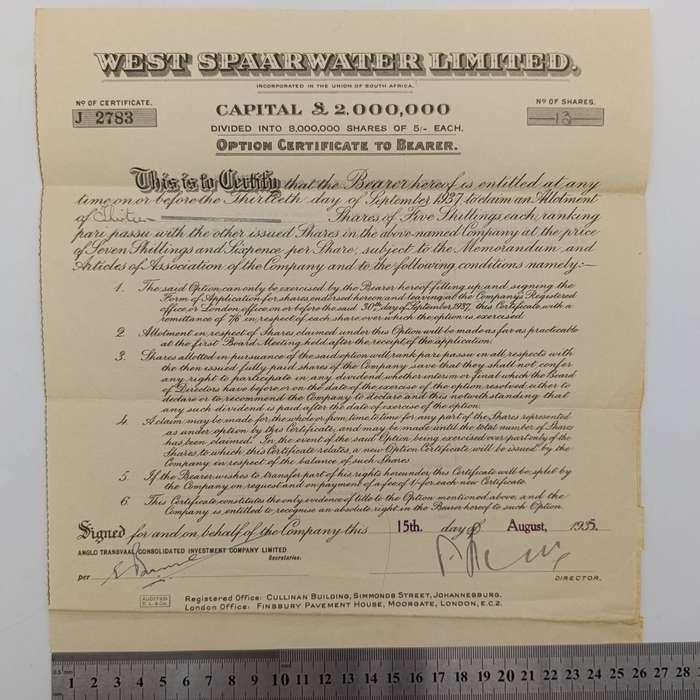 WEST SPAARWATER LIMITED.
INCORPORATED IN THE UNION OF SOUTH AFRICA.
No OF CERTIFICATE. CAPITAL £2,000,000 No OF SHARES.
J 2783 DIVIDED INTO 8,000,000 SHARES OF 5/- EACH. 13
OPTION CERTIFICATE TO BEARER.
This is to Certify that the Bearer hereof is entitled at any
time on or before the Thirtieth day of September 1937, to claim an Allotment
of Thirteen Shares of Five Shillings each, ranking
pari passu with the other issued Shares in the above named Company at the price
of Seven Shillings and Sixpence per Share, subject to the Memorandum and
Articles of Association of the Company and to the following conditions namely:—
1. The said Option can only be exercised by the Bearer hereof filling up and signing the
Form of Application for shares endorsed hereon and leaving at the Company's Registered
office or London office, on or before the said 30th day of September 1937, this Certificate, with a
remittance of 7/6 in respect of each share over which the option is exercised.
2. Allotment in respect of Shares claimed under this Option will be made as far as practicable
at the first Board Meeting held after the receipt of the application.
3. Shares allotted in pursuance of the said option will rank pari passu in all respects with
the then issued fully paid shares of the Company save that they shall not confer
any right to participate in any dividend, whether interim or final, which the Board
of Directors have before or on the date of the exercise of the option, resolved either to
declare or to recommend the Company to declare and this notwithstanding that
any such dividend is paid after the date of exercise of the option.
4. A claim may be made for the whole or from time to time for any part of the Shares represented
as under option by this Certificate, and may be made until the total number of Shares
has been claimed. In the event of the said Option being exercised over part only of the
Shares to which this Certificate relates, a new Option Certificate will be issued by the
Company in respect of the balance of such Shares.
5. If the Bearer wishes to transfer part of his rights hereunder this Certificate will be split by
the Company on request and on payment of a fee of 1/- for each new Certificate.
6. This Certificate constitutes the only evidence of title to the Option mentioned above, and the
Company is entitled to recognise an absolute right in the Bearer hereof to such Option.
Signed for and on behalf of the Company this 15th. day of August, 1935.
ANGLO TRANSVAAL CONSOLIDATED INVESTMENT COMPANY LIMITED
Secretaries.
per DIRECTOR.
AUDITED
Registered Office: CULLINAN BUILDING, SIMMONDS STREET, JOHANNESBURG.
London Office: FINSBURY PAVEMENT HOUSE, MOORGATE, LONDON, E.C.2.
0.5 mm
1 2 3 4 5 6 7 8 9 10 11 12 13 14 15 16 17 18 19 20 21 22 23 24 25 26 27 28